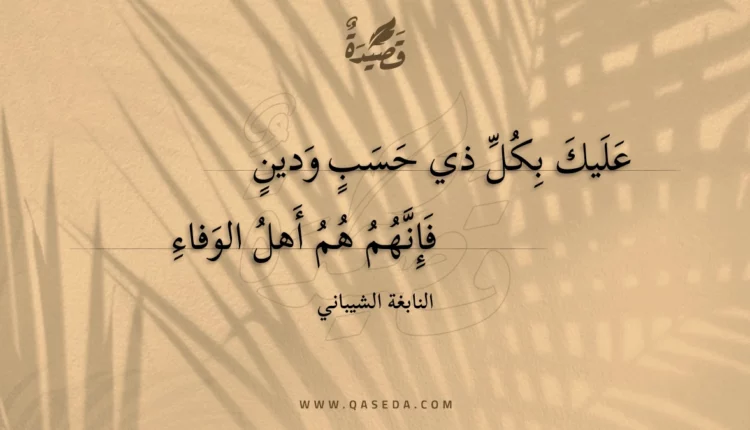 قَصِيدَةٌ
عَلَيكَ بِكُلِّ ذي حَسَبٍ وَدينٍ
فَإِنَّهُمُ هُمُ أَهلُ الوَفاءِ
النابغة الشيباني
WWW.QASEDA.COM